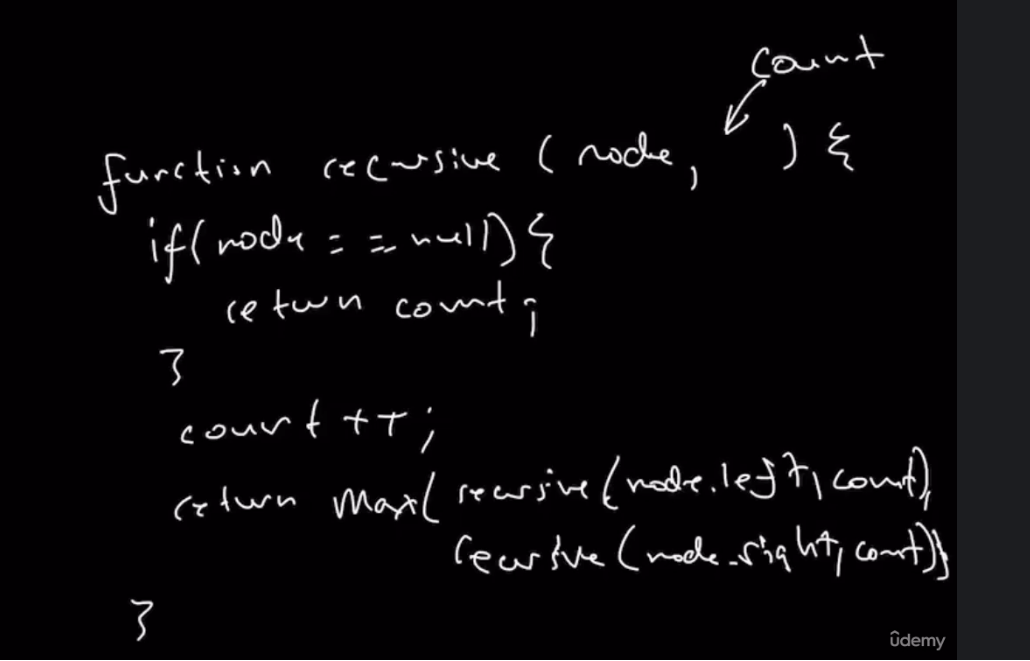 count
function recursive ( node, ) {
if(node == null) {
return count;
}
count ++;
return Max( recursive (node.left, count),
recursive (node.right, count))
}
ûdemy